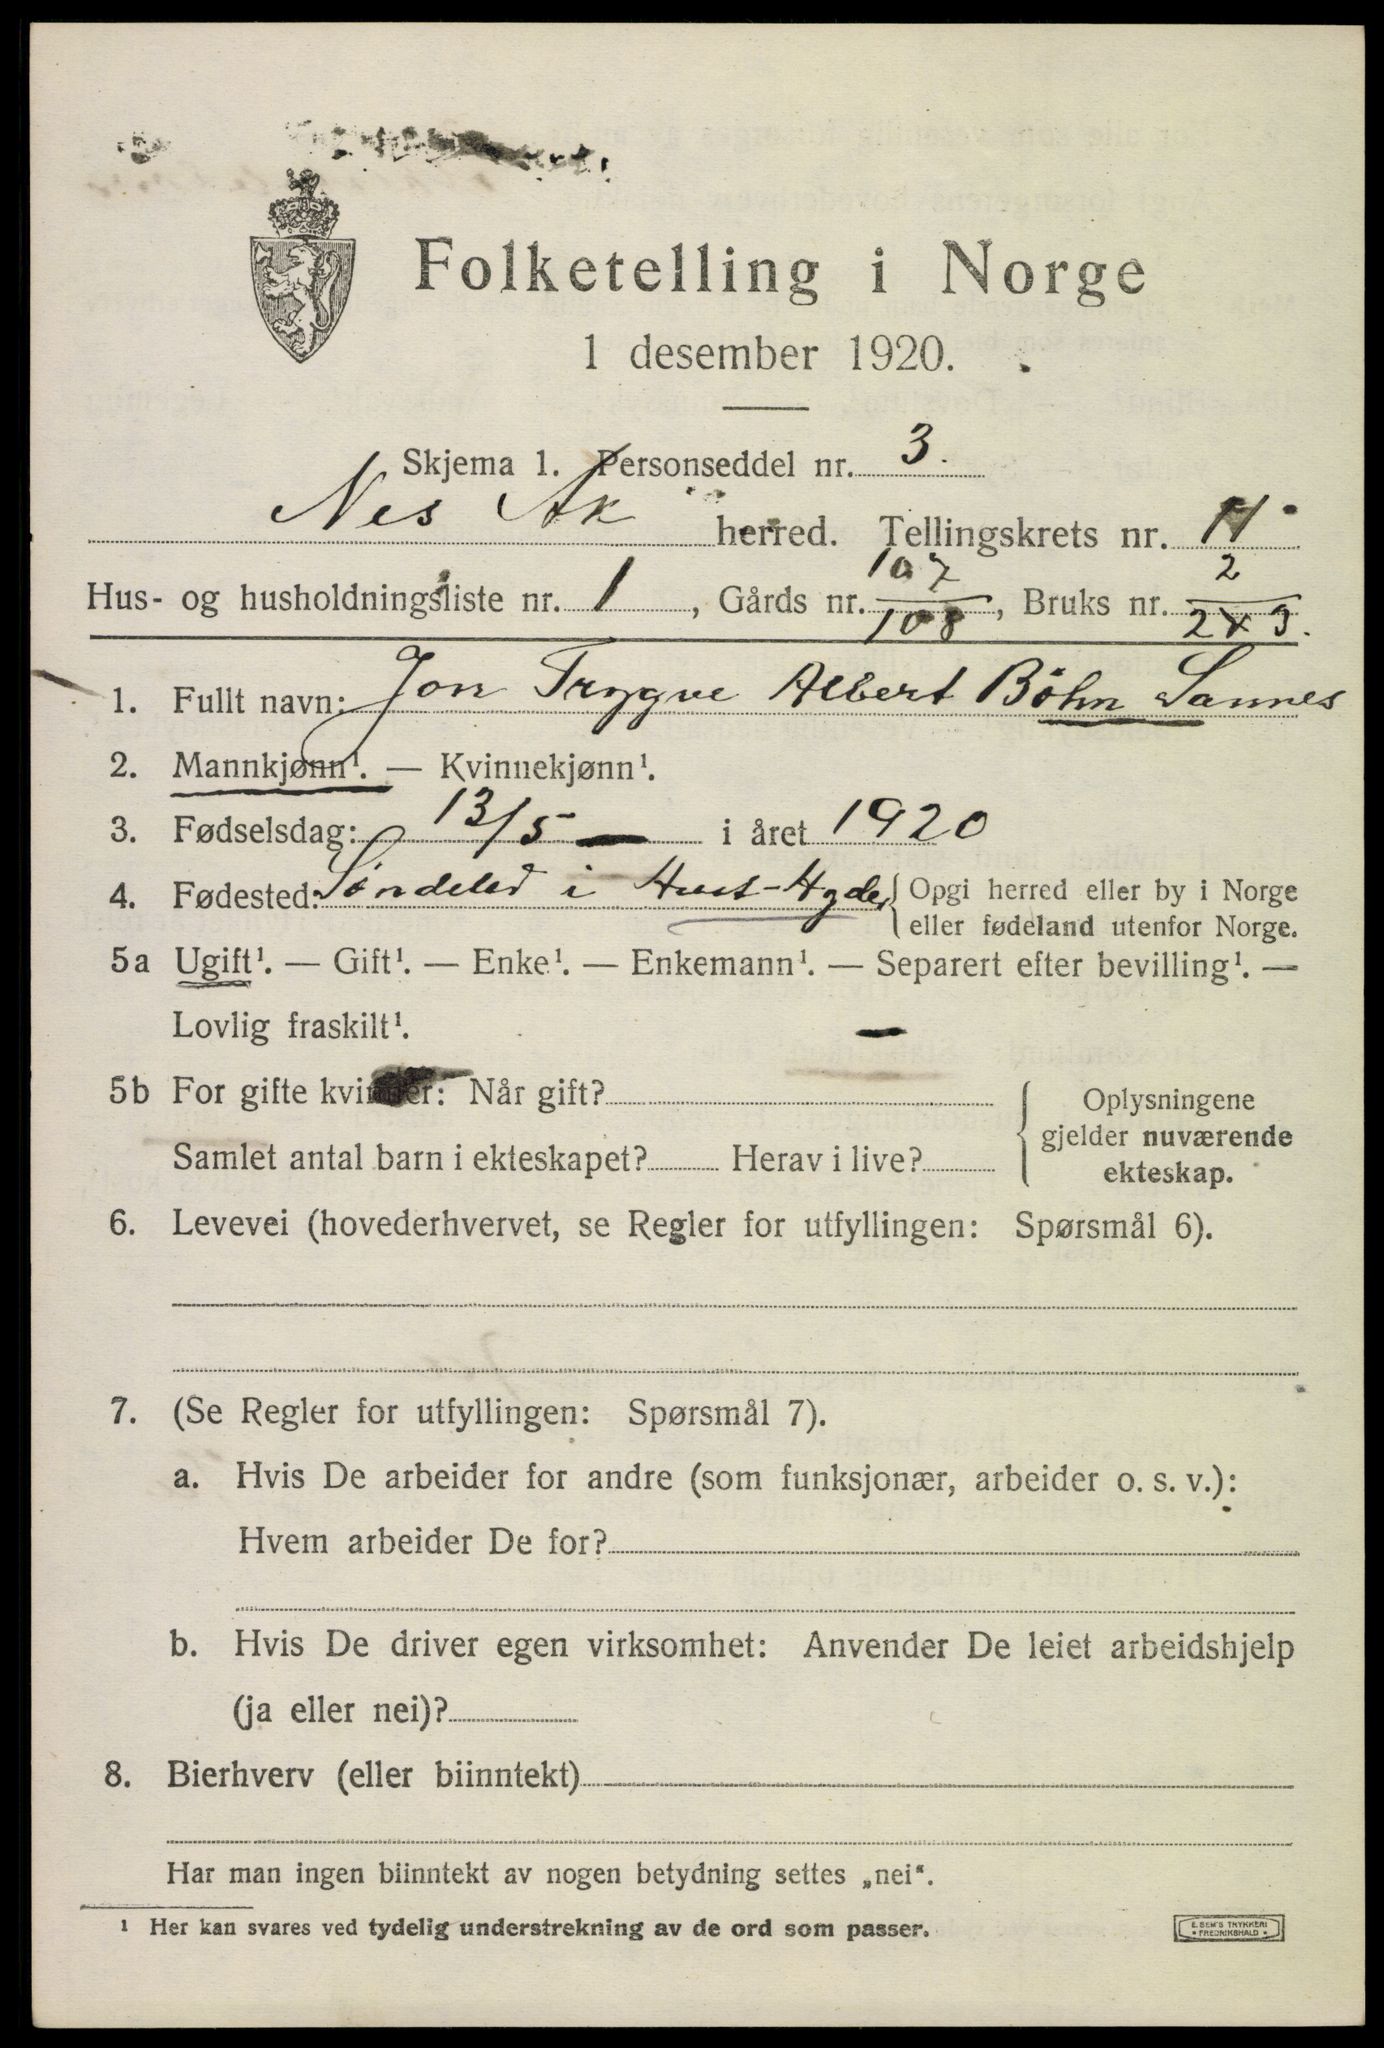 Folketelling i Norge
1 desember 1920.
Skjema 1. Personseddel nr. 3.
Nes Ak herred. Tellingskrets nr. 11
Hus- og husholdningsliste nr. 1, Gårds nr. 107/108, Bruks nr. 2/2 x 3.
1. Fullt navn: Jon Trygve Albert Böhn Sannes
2. Mannkjønn¹. — Kvinnekjønn¹.
3. Fødselsdag: 13/5 — i året 1920
4. Fødested: Söndeled i Aust-Agder { Opgi herred eller by i Norge
eller fødeland utenfor Norge.
5a Ugift¹. — Gift¹. — Enke¹. — Enkemann¹. — Separert efter bevilling¹. —
Lovlig fraskilt¹. —
5b For gifte kvinner: Når gift?
Samlet antal barn i ekteskapet? Herav i live?
{ Oplysningene
gjelder nuværende
ekteskap.
6. Levevei (hovederhvervet, se Regler for utfyllingen: Spørsmål 6).
7. (Se Regler for utfyllingen: Spørsmål 7).
a. Hvis De arbeider for andre (som funksjonær, arbeider o. s. v.):
Hvem arbeider De for?
b. Hvis De driver egen virksomhet: Anvender De leiet arbeidshjelp
(ja eller nei)?
8. Bierhverv (eller biinntekt)
Har man ingen biinntekt av nogen betydning settes „nei“.
¹ Her kan svares ved tydelig understrekning av de ord som passer.
E. SEM'S TRYKKERI
• FREDRIKSHALD •